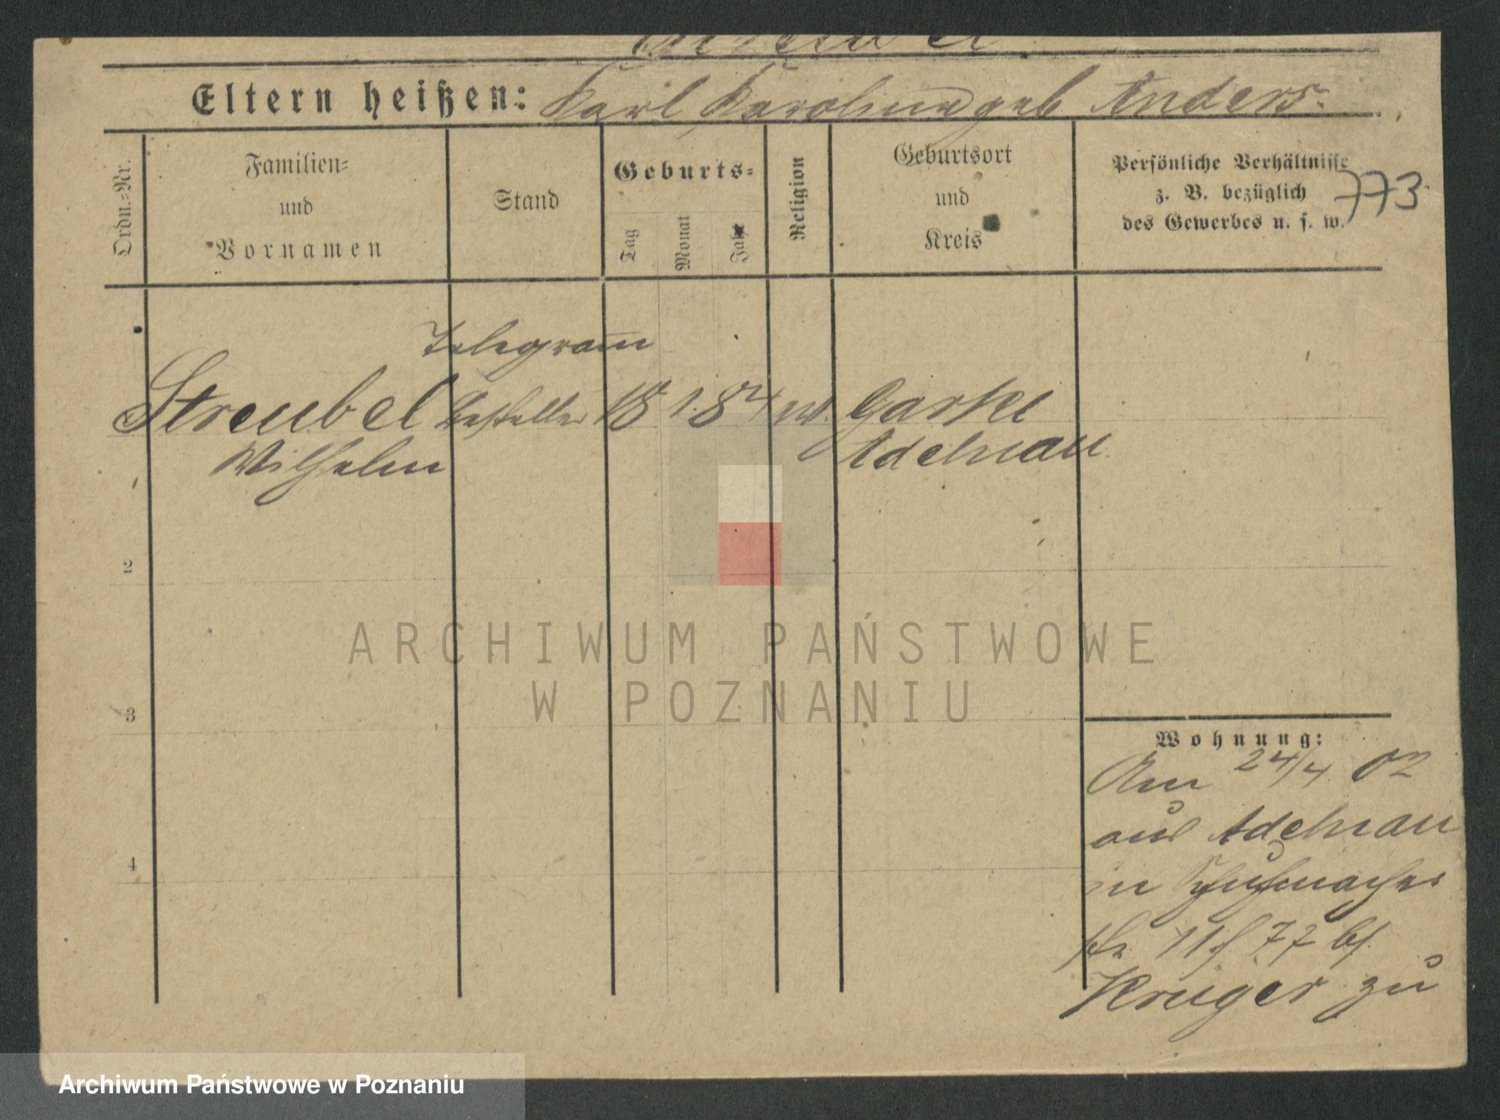 Eltern heißen: Karl, Karoline geb Anders.
Ordn.-Nr.
Familien- und Vornamen
Stand
Geburts-
Tag
Monat
Jahr
Religion
Geburtsort und Kreis
Persönliche Verhältnisse
z. B. bezüglich
des Gewerbes u. s. w.
773
Telegram
Streubel besteller 18 1. 84 ev. Garki
Wilhelm Adelnau
2
3
4
Wohnung:
Am 24/4 02
aus Adelnau
in Schuhmacher
str. 11 f. 77 bf
Krüger zu
ARCHIWUM PAŃSTWOWE
W POZNANIU
Archiwum Państwowe w Poznaniu